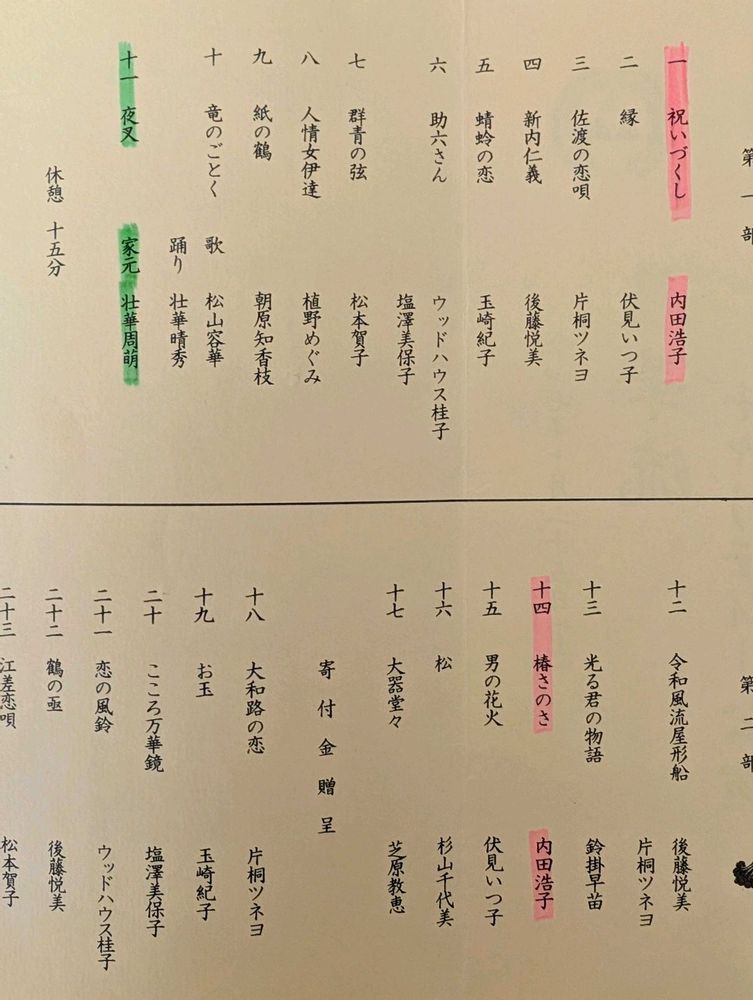 第一部
一 祝いづくし 内田浩子
二 縁 伏見いつ子
三 佐渡の恋唄 片桐ツネヨ
四 新内仁義 後藤悦美
五 蜻蛉の恋 玉崎紀子
六 助六さん ウッドハウス桂子
塩澤美保子
七 群青の弦 松本賀子
八 人情女伊達 植野めぐみ
九 紙の鶴 朝原知香枝
十 竜のごとく 歌 松山容華
踊り 壮華晴秀
十一 夜叉 家元 壮華周萌
休憩 十五分
第二部
十二 令和風流屋形船 後藤悦美
片桐ツネヨ
十三 光る君の物語 鈴掛早苗
十四 椿さのさ 内田浩子
十五 男の花火 伏見いつ子
十六 松 杉山千代美
十七 大器堂々 芝原教恵
寄付金贈呈
十八 大和路の恋 片桐ツネヨ
十九 お玉 玉崎紀子
二十 こころ万華鏡 塩澤美保子
二十一 恋の風鈴 ウッドハウス桂子
二十二 鶴の亟 後藤悦美
二十三 江差恋唄 松本賀子